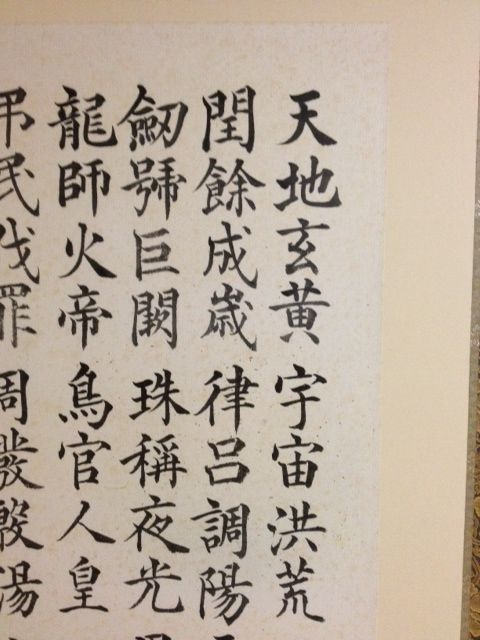 天地玄黃宇宙洪荒
閏餘成歲律呂調陽
劒號巨闕珠稱夜光
龍師火帝鳥官人皇
弔民伐罪周發殷湯